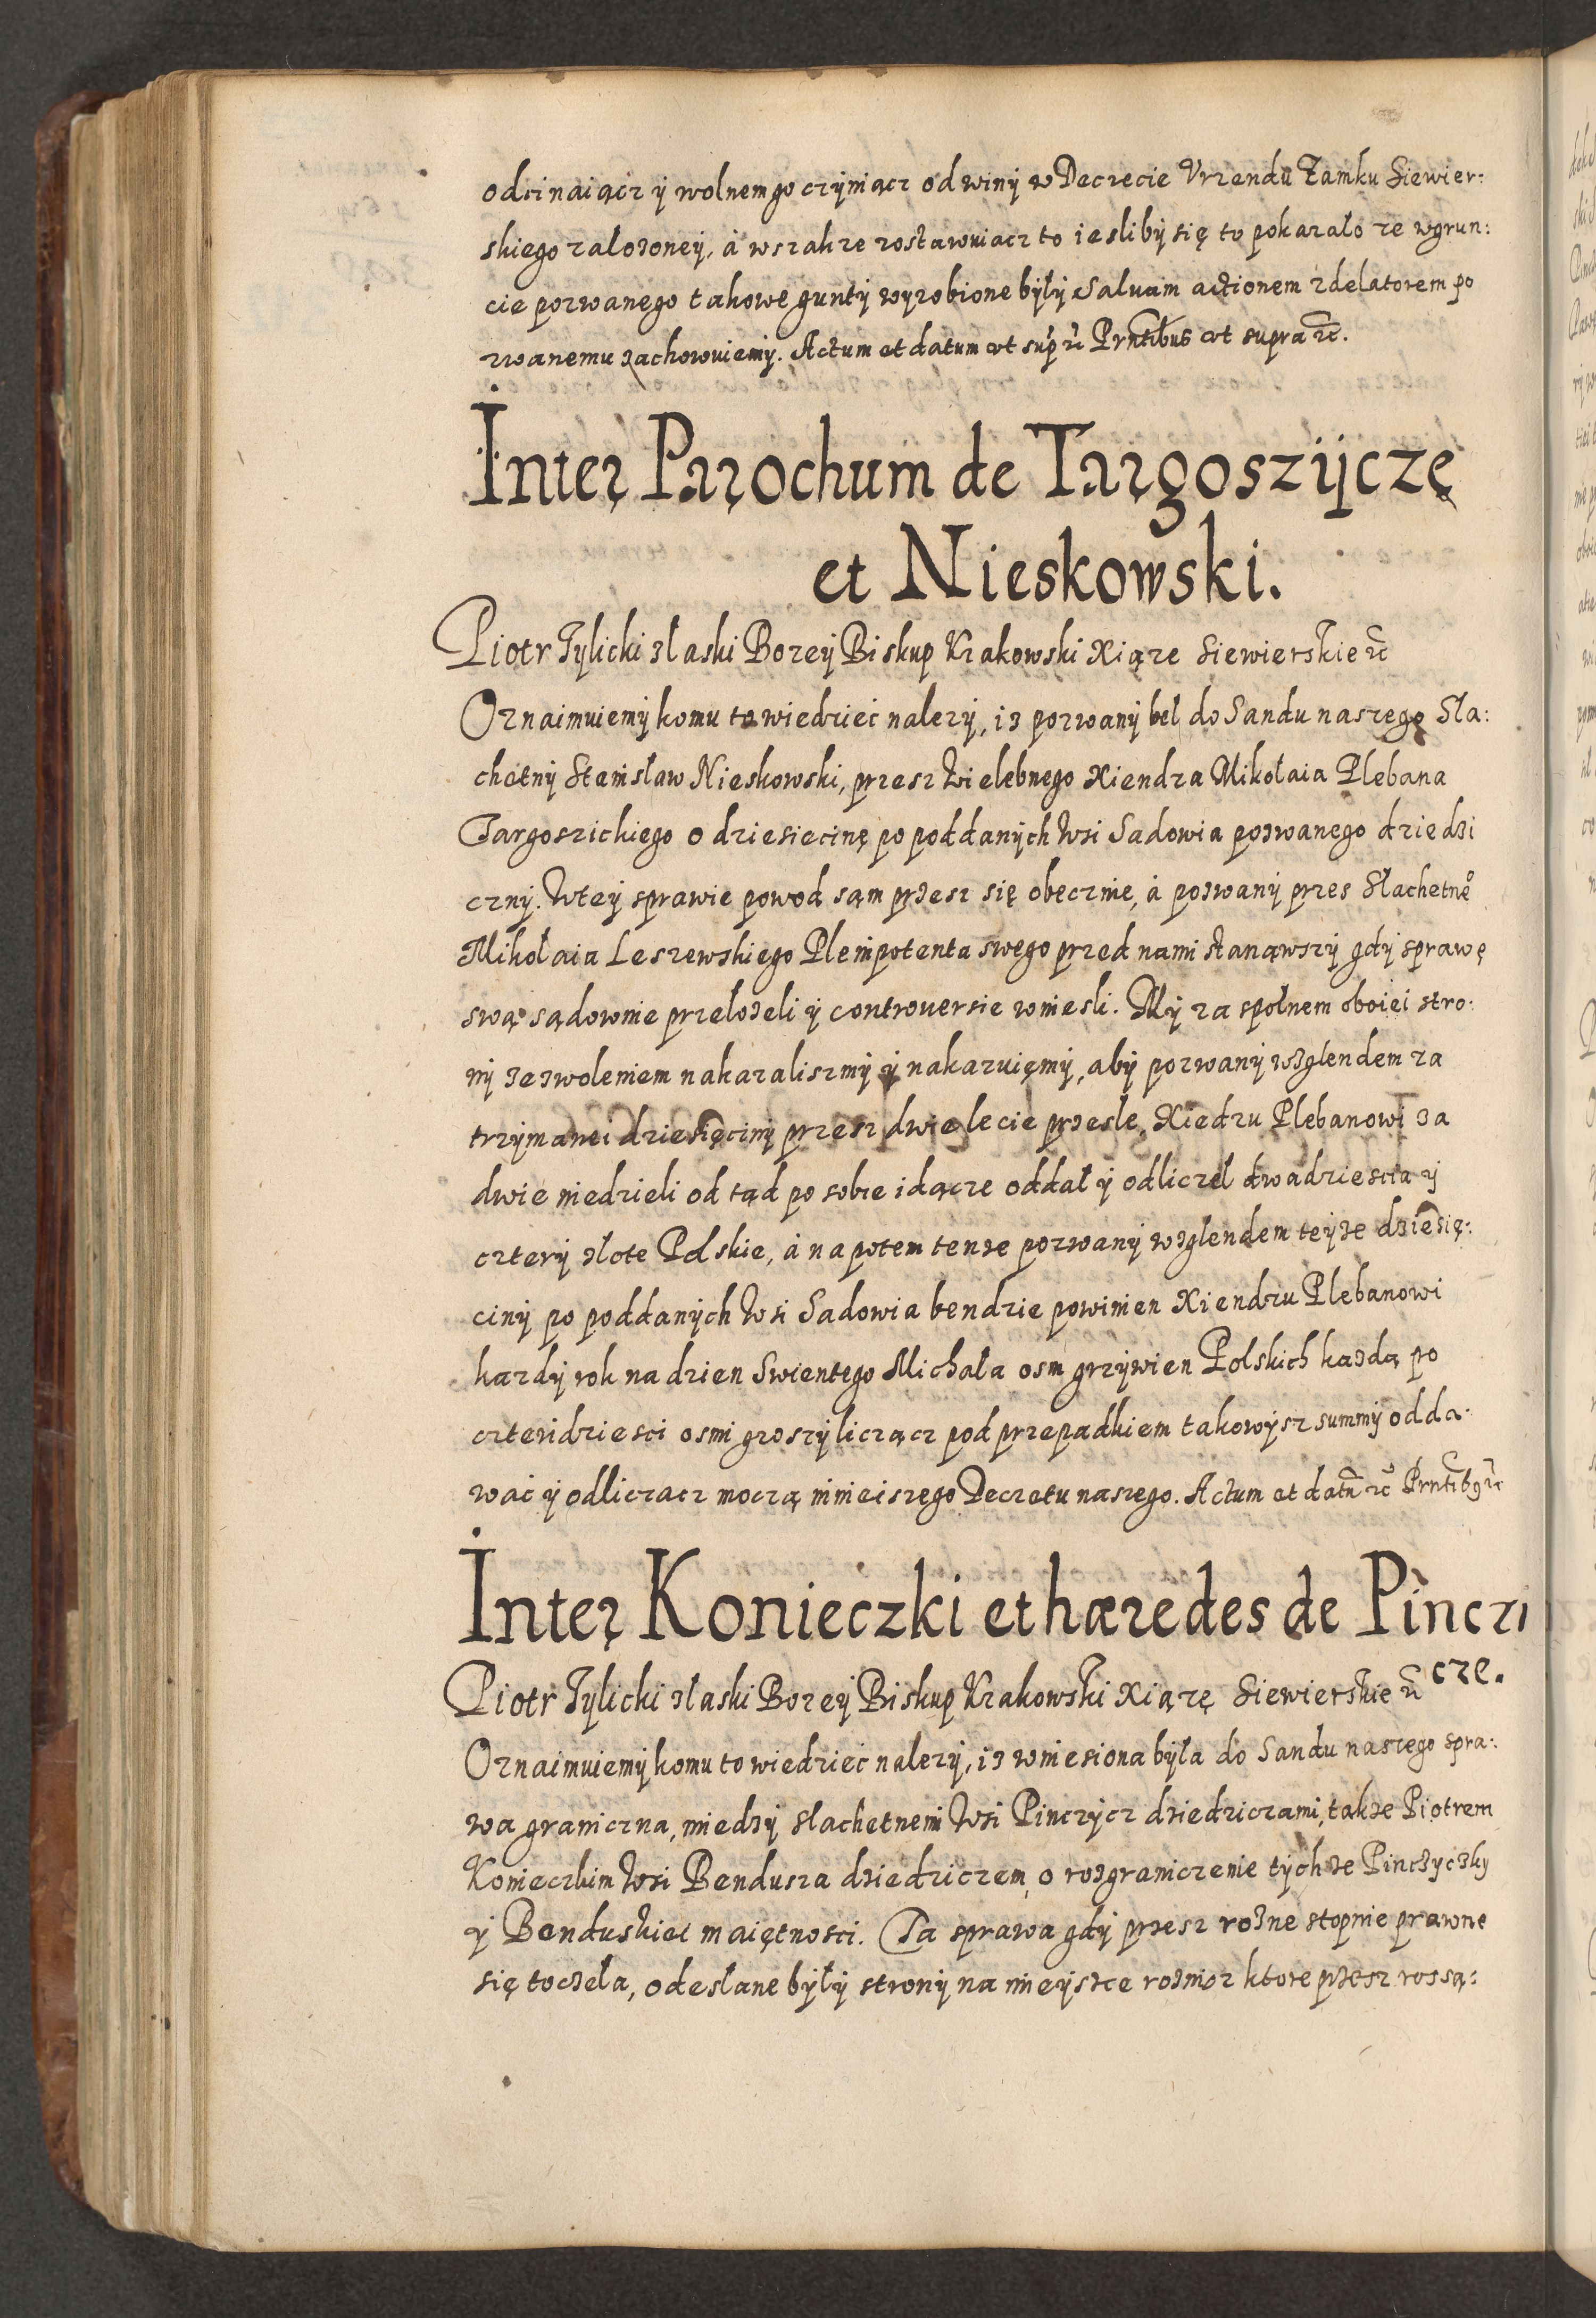 odcinaiącz ÿ wolnem go czÿniącz od winÿ w Decrecie Vrzendu Zamku Siewier:
skiego założoneÿ, à wszakze zostawuiacz to iesliby się to pokazało ze w grun:
cie pozwanego takowe guntÿ wyrobione bÿłÿ Saluam actionem z delatorem po
zwanemu zachowuiemÿ. Actum et datum vt sup etc Prntibus vt supra etc.
Inter Parochum de Targoszÿczę
et Nieskowski.
Piotr Tylicki z łaski Bozeÿ Biskup Krakowski Xiąze Siewierskie etc
Oznaimuiemÿ komu to wiedzieć nalezÿ, iz pozwanÿ bel do Sandu naszego Sla:
chetnÿ Stanisław Nieskowski, przesz Wielebnego Xiendza Mikołaia Plebana
Targoszickiego o dziesiecinę po poddanÿch Wsi Sadowia pozwanego dziedzi
cznÿ. W teÿ sprawie powod sąm przesz się obecznie, à pozwanÿ przes Slachetne°
Mikołaia Leszewskiego Plenipotenta swego przed nami stanąwszÿ gdÿ sprawę
swą sądownie przełożeli ÿ controuersie wniesli. Mÿ za społnem oboiei stro:
nÿ zezwoleniem nakazaliszmÿ ÿ nakazuięmÿ, abÿ pozwanÿ wzglendem za
trzÿmanei dziesięcinÿ przesz dwie lecie przesłe, Xiedzu Plebanowi za
dwie niedzieli od tąd po sobie idącze oddał ÿ odliczel dwadziescia ÿ
czterÿ złote Polskie, à na potem tenze pozwanÿ wzglendem teÿze dziesię:
cinÿ po poddanÿch Wsi Sadowia bendzie powinien Xiendzu Plebanowi
kazdÿ rok na dzien Swientego Michała osm grzÿwien Polskich kazdą po
czteridziesci osmi groszÿ licząc pod przepadkiem takowÿsz summÿ odda:
wać ÿ odliczacz moczą ninieiszego Decretu naszego. Actum et datn etc Prntibg etc
Inter Konieczki et hæredes de Pinczi
cze.
Piotr Tylicki z łaski Bozeÿ Biskup Krakowski Xiązę Siewierskie etc
Oznaimuiemÿ komu to wiedzieć nalezÿ, iz wniesiona bÿła do Sandu naszego spra:
wa graniczna, miedzÿ slachetnemi Wsi Pinczÿcz dziedziczami, takze Piotrem
Konieczkim Wsi Bendusza dziedziczem, o rozgraniczenie tÿchze Pinczyczky
ÿ Benduskiei maiętnosci. Ta sprawa gdÿ przesz rozne stopnie prawne
się toczeła, odesłane bÿłÿ stronÿ na mieÿsce roznicz ktore przesz rossą: